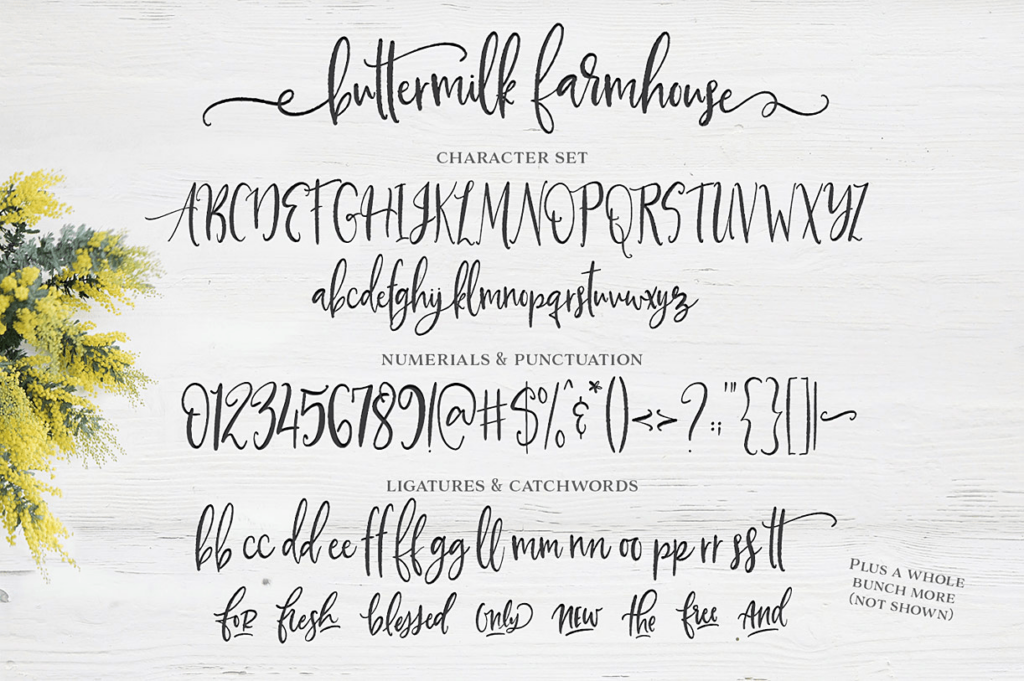 buttermilk farmhouse
CHARACTER SET
ABCDEFGHIJKLMNOPQRSTUVWXYZ
abcdefghijklmnopqrstuvwxyz
NUMERIALS & PUNCTUATION
0123456789!@#$%^&*()-<>?:;'"{}[]|~
LIGATURES & CATCHWORDS
bb cc dd ee ff ff gg ll mm nn oo pp rr ss tt
for fresh blessed only new the free And
PLUS A WHOLE
BUNCH MORE
(NOT SHOWN)